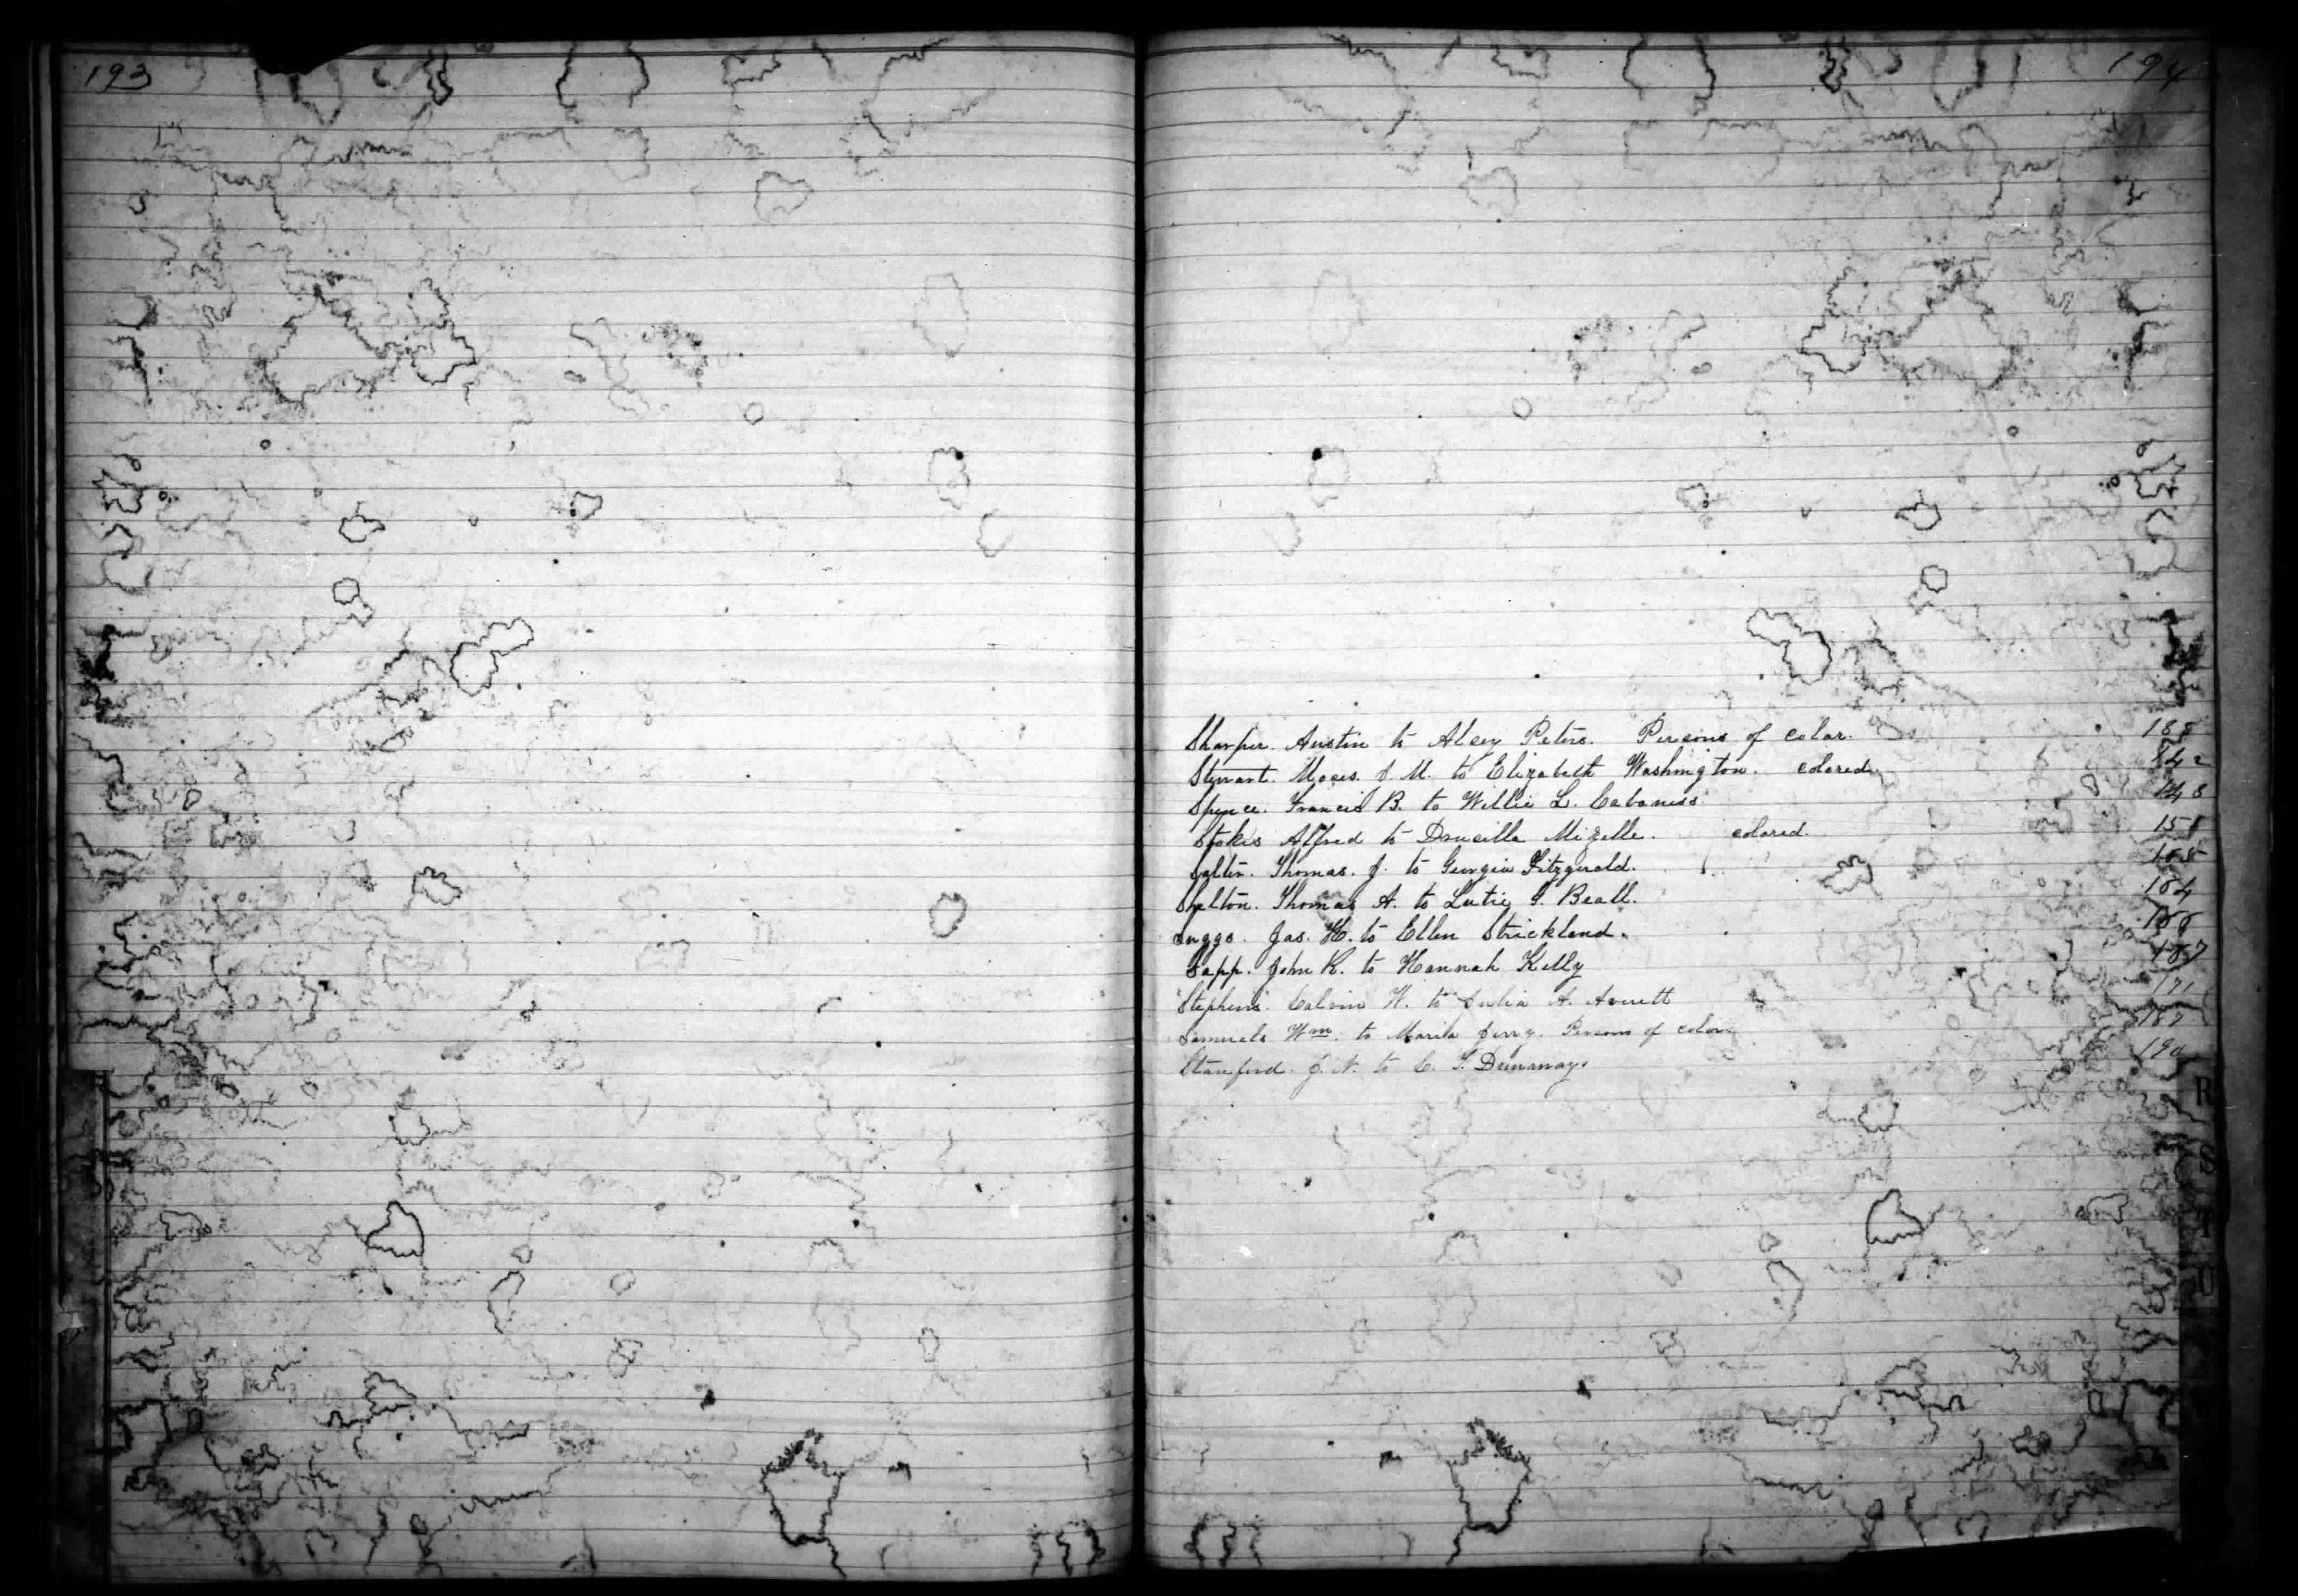 193
194
Sharper. Austin to Alcey Peters. Persons of color.
Stewart. Moses. J. M. to Elizabeth Washington. colored. 142
Spence. Francis B. to Willie L. Cabaniss 148
Stokes Alfred to Drucilla Mizelle. colored. 151
Salter. Thomas. J. to Georgia Fitzgerald.
Shelton. Thomas A. to Lutie G. Beall. 164
Suggs. Jas. H. to Ellen Strickland.
Sapp. John K. to Hannah Kelly
Stephens. Calvin W. to Julia A. Averett 171
Samuels Wm. to Marila Perry. Persons of color. 187
Stanford. J. N. to C. G. Dunaway. 190
R
S
T
U